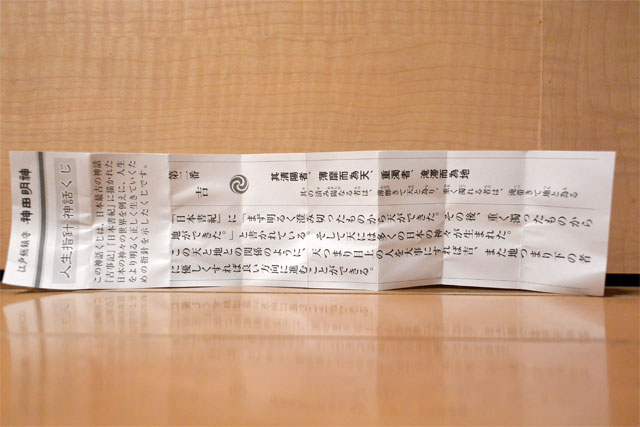 江戸総鎮守 神田明神
人生指針 神話くじ
この神話くじは、日本最古の神話
「古事記」「日本書紀」に描かれた
日本の神々の世界を例えに、人生
をより明るく正しく生きていくた
めの指針を示したくじです。
第二番
吉
其清陽者、薄靡而為天、重濁者、淹滞而為地
其の清み陽なる者は、薄靡きて天と為り、重く濁れる者は、淹滞きて地と為る
「日本書紀」に「まず明るく澄み切ったものから天ができた。その後、重く濁ったものから
地ができた。」と書かれている。そして天には多くの日本の神々が生まれた。
この天と地との関係のように、天つまり目上の人を大事にすれば吉、また地つまり下の者
に優しくすれば良い方向に進むことができる。